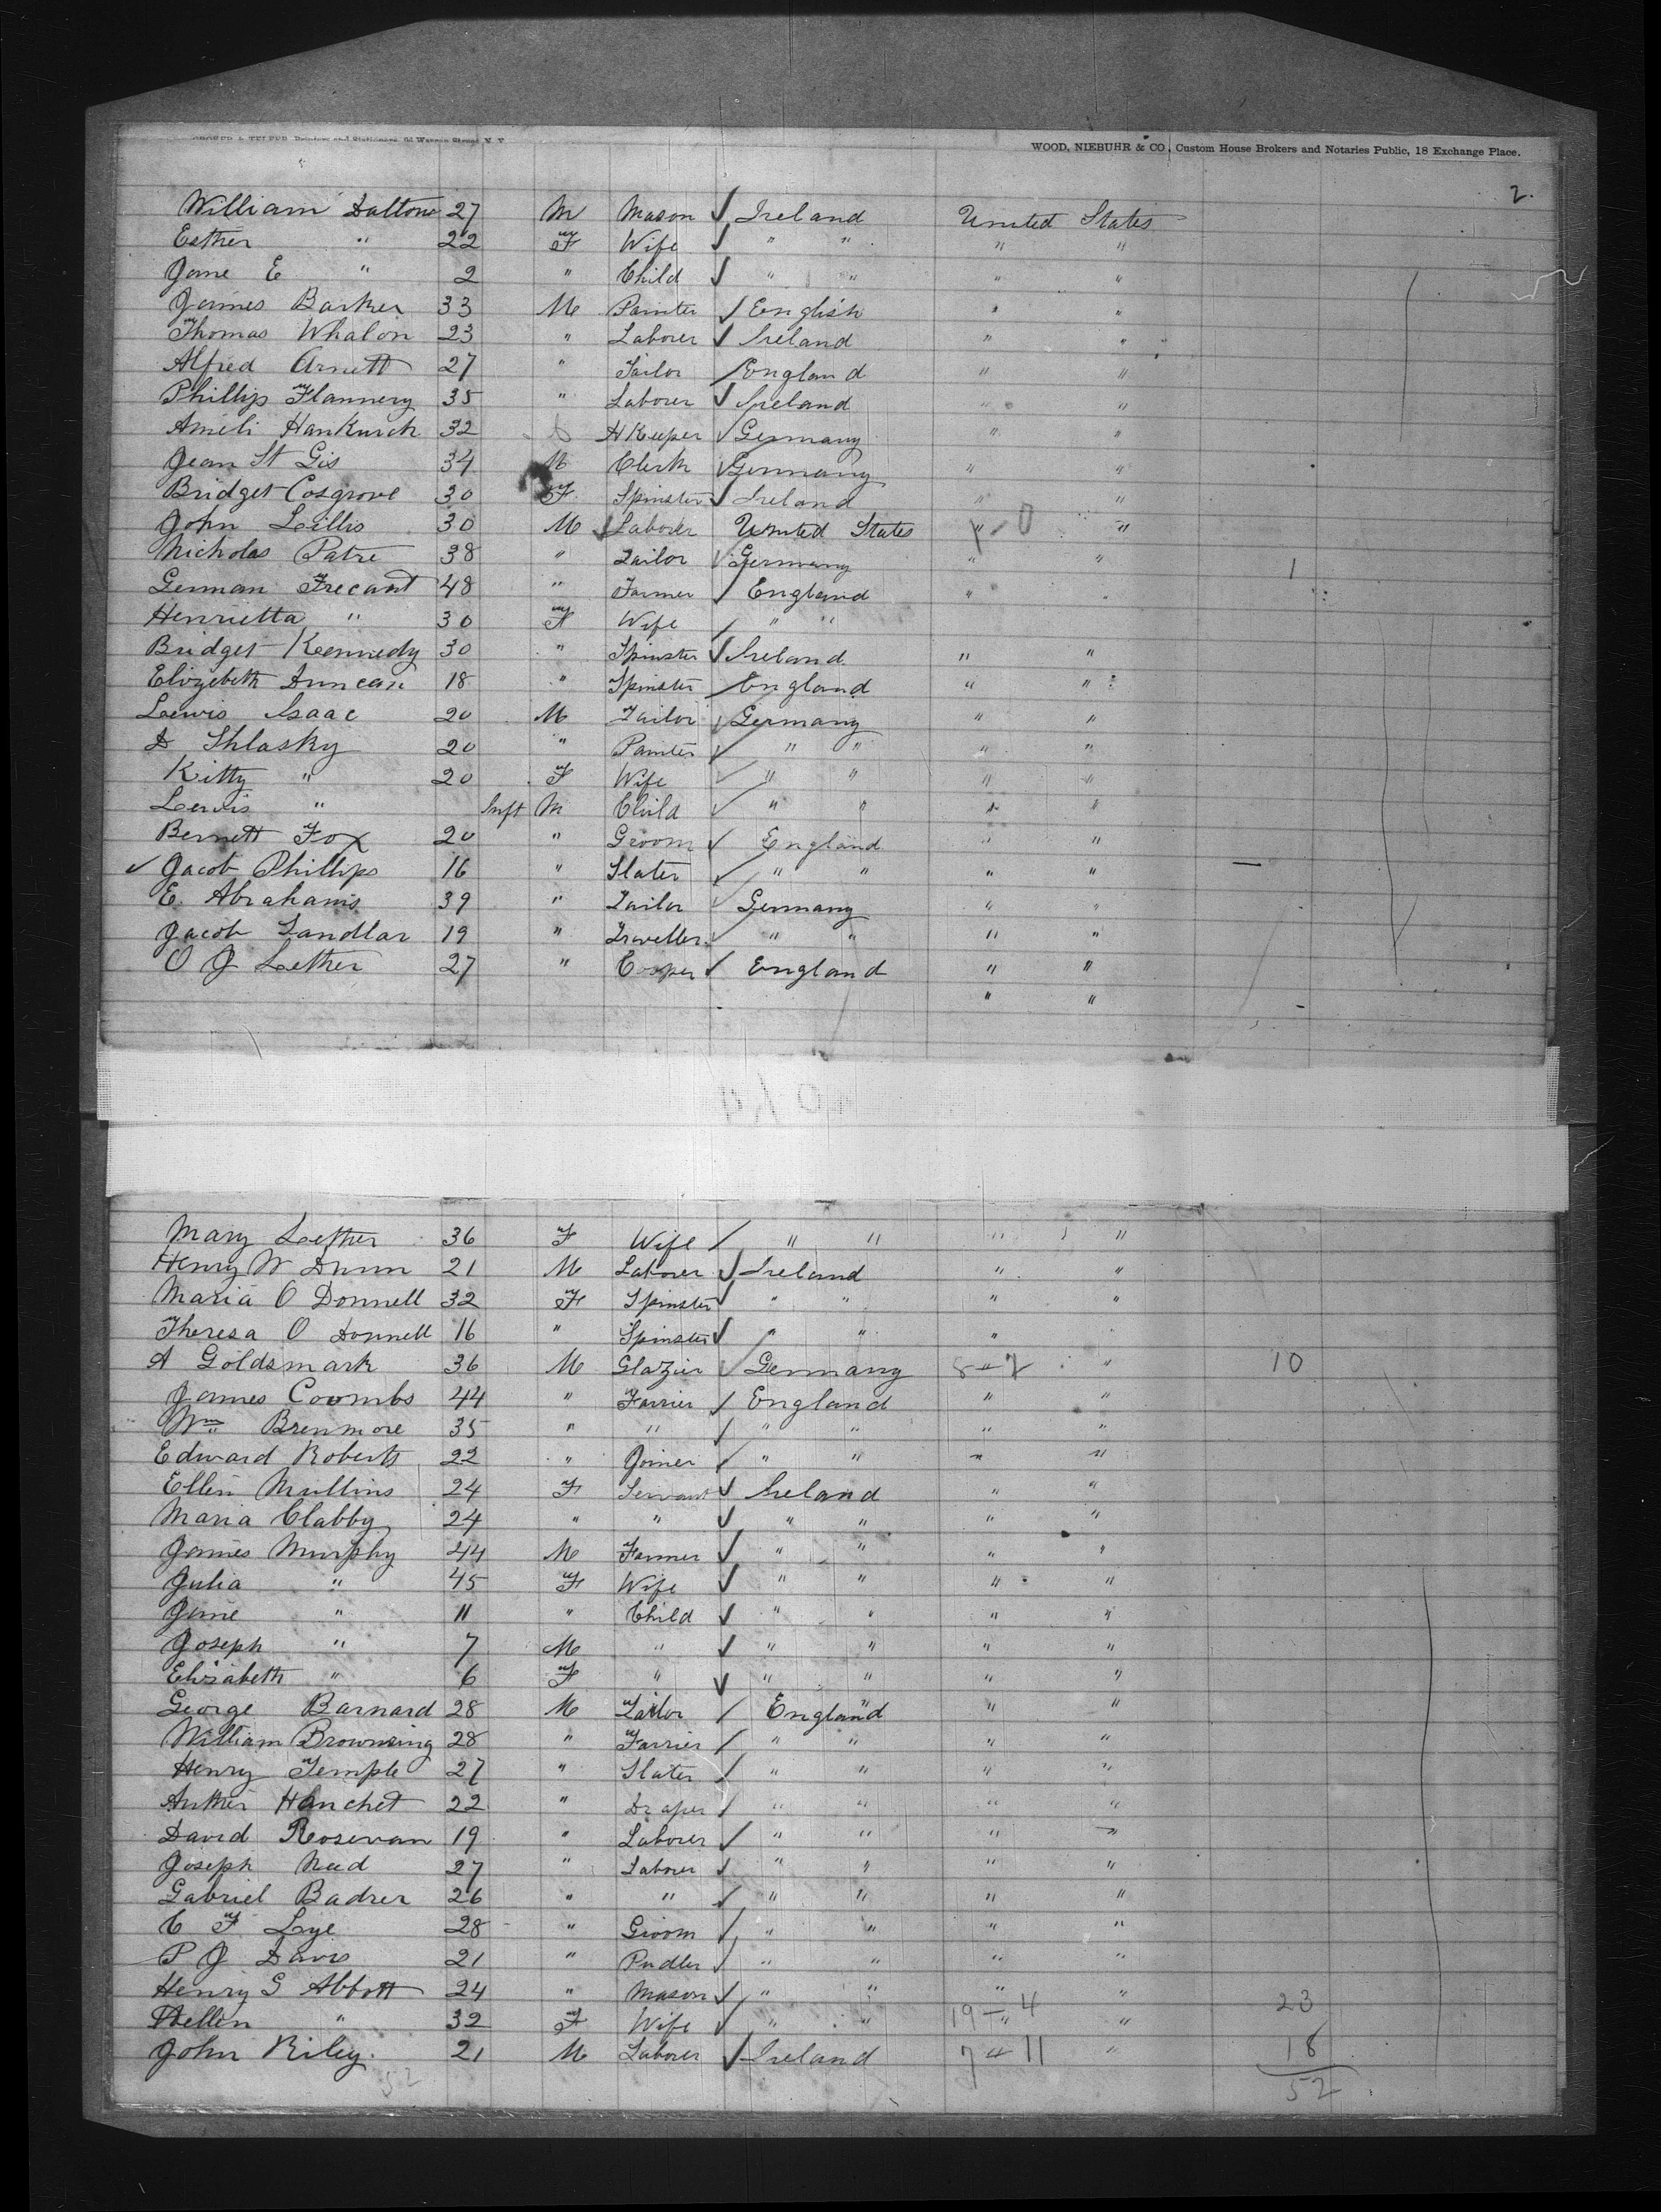 WOOD, NIEBUHR & CO, Custom House Brokers and Notaries Public, 18 Exchange Place.
2.
William Dalton 27 M Mason Ireland United States
Esther " 22 F Wife " " " "
Jane E " 2 " Child " " " "
James Barker 33 M Painter English " "
Thomas Whalon 23 " Laborer Ireland " "
Alfred Arnett 27 " Tailor England " "
Phillip Flannery 35 " Laborer Ireland " "
Ameli Hankurch 32 H Keeper Germany " "
Jean St Gis 34 M Clerk Germany " "
Bridget Cosgrove 30 F Spinster Ireland " "
John Lillis 30 M Laborer United States " "
Nicholas Patre 38 " Tailor Germany " " 1
German Frecant 48 " Farmer England " "
Henrietta " 30 F Wife " "
Bridget Kennedy 30 " Spinster Ireland " "
Elizebeth Duncan 18 " Spinster England " "
Lewis Isaac 20 M Tailor Germany " "
D Shlasky 20 " Painter " " " "
Kitty " 20 F Wife " " " "
Lewis " Inft M Child " " " "
Bernett Fox 20 " Groom England " "
✓ Jacob Phillips 16 " Slater " " " " —
E. Abrahams 39 " Tailor Germany " "
Jacob Landlar 19 " Traveller " " " "
O J Lether 27 " Cooper England " "
" "
Mary Lether 36 F Wife " " " "
Henry W Dunn 21 M Laborer Ireland " "
Maria O Donnell 32 F Spinster " " " "
Theresa O Donnell 16 " Spinster " " "
A Goldsmark 36 M Glazier Germany " 10
James Coombs 44 " Farrier England " "
Wm Brenmore 35 " " " " " "
Edward Roberts 22 " Joiner " " " "
Ellen Mullins 24 F Servant Ireland " "
Maria Clabby 24 " " " " " "
James Murphy 44 M Farmer " " " "
Julia " 45 F Wife " " " "
Jane " 11 " Child " " " "
Joseph " 7 M " " " " "
Elizabeth " 6 F " " " " "
George Barnard 28 M Tailor England " "
William Browning 28 " Farrier " " " "
Henry Temple 27 " Slater " " " "
Arther Hanchet 22 " Draper " " " "
David Rosevan 19 " Laborer " " " "
Joseph Need 27 " Laborer " " " "
Gabriel Badrer 26 " " " " " "
C F Lye 28 " Groom " " " "
P J Davis 21 " Pudler " " " "
Henry G Abbott 24 " Mason " " " "
Hellen " 32 F Wife " " 19 – 4 " 23
John Riley 21 M Laborer Ireland 7 11 " 18
52 52